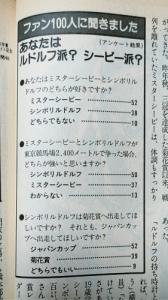 ファン100人に聞きました
あなたは
ルドルフ派？ シービー派？
（アンケート結果）
●あなたはミスターシービーとシンボリ
ルドルフのどちらが好きですか？
ミスターシービー 52
シンボリルドルフ 38
どちらでもない 10
●ミスターシービーとシンボリルドルフが
東京競馬場2,400メートルで争った場合、
どちらが強いと思いますか？
シンボリルドルフ 50
ミスターシービー 37
わからない 13
●シンボリルドルフは菊花賞へ出走してほ
しいですか？ それとも、ジャパンカップ
へ出走してほしいですか？
ジャパンカップ 52
菊花賞 39
どちらでもいい 9
列を離れていたミスターシービーは、体調もすっかり